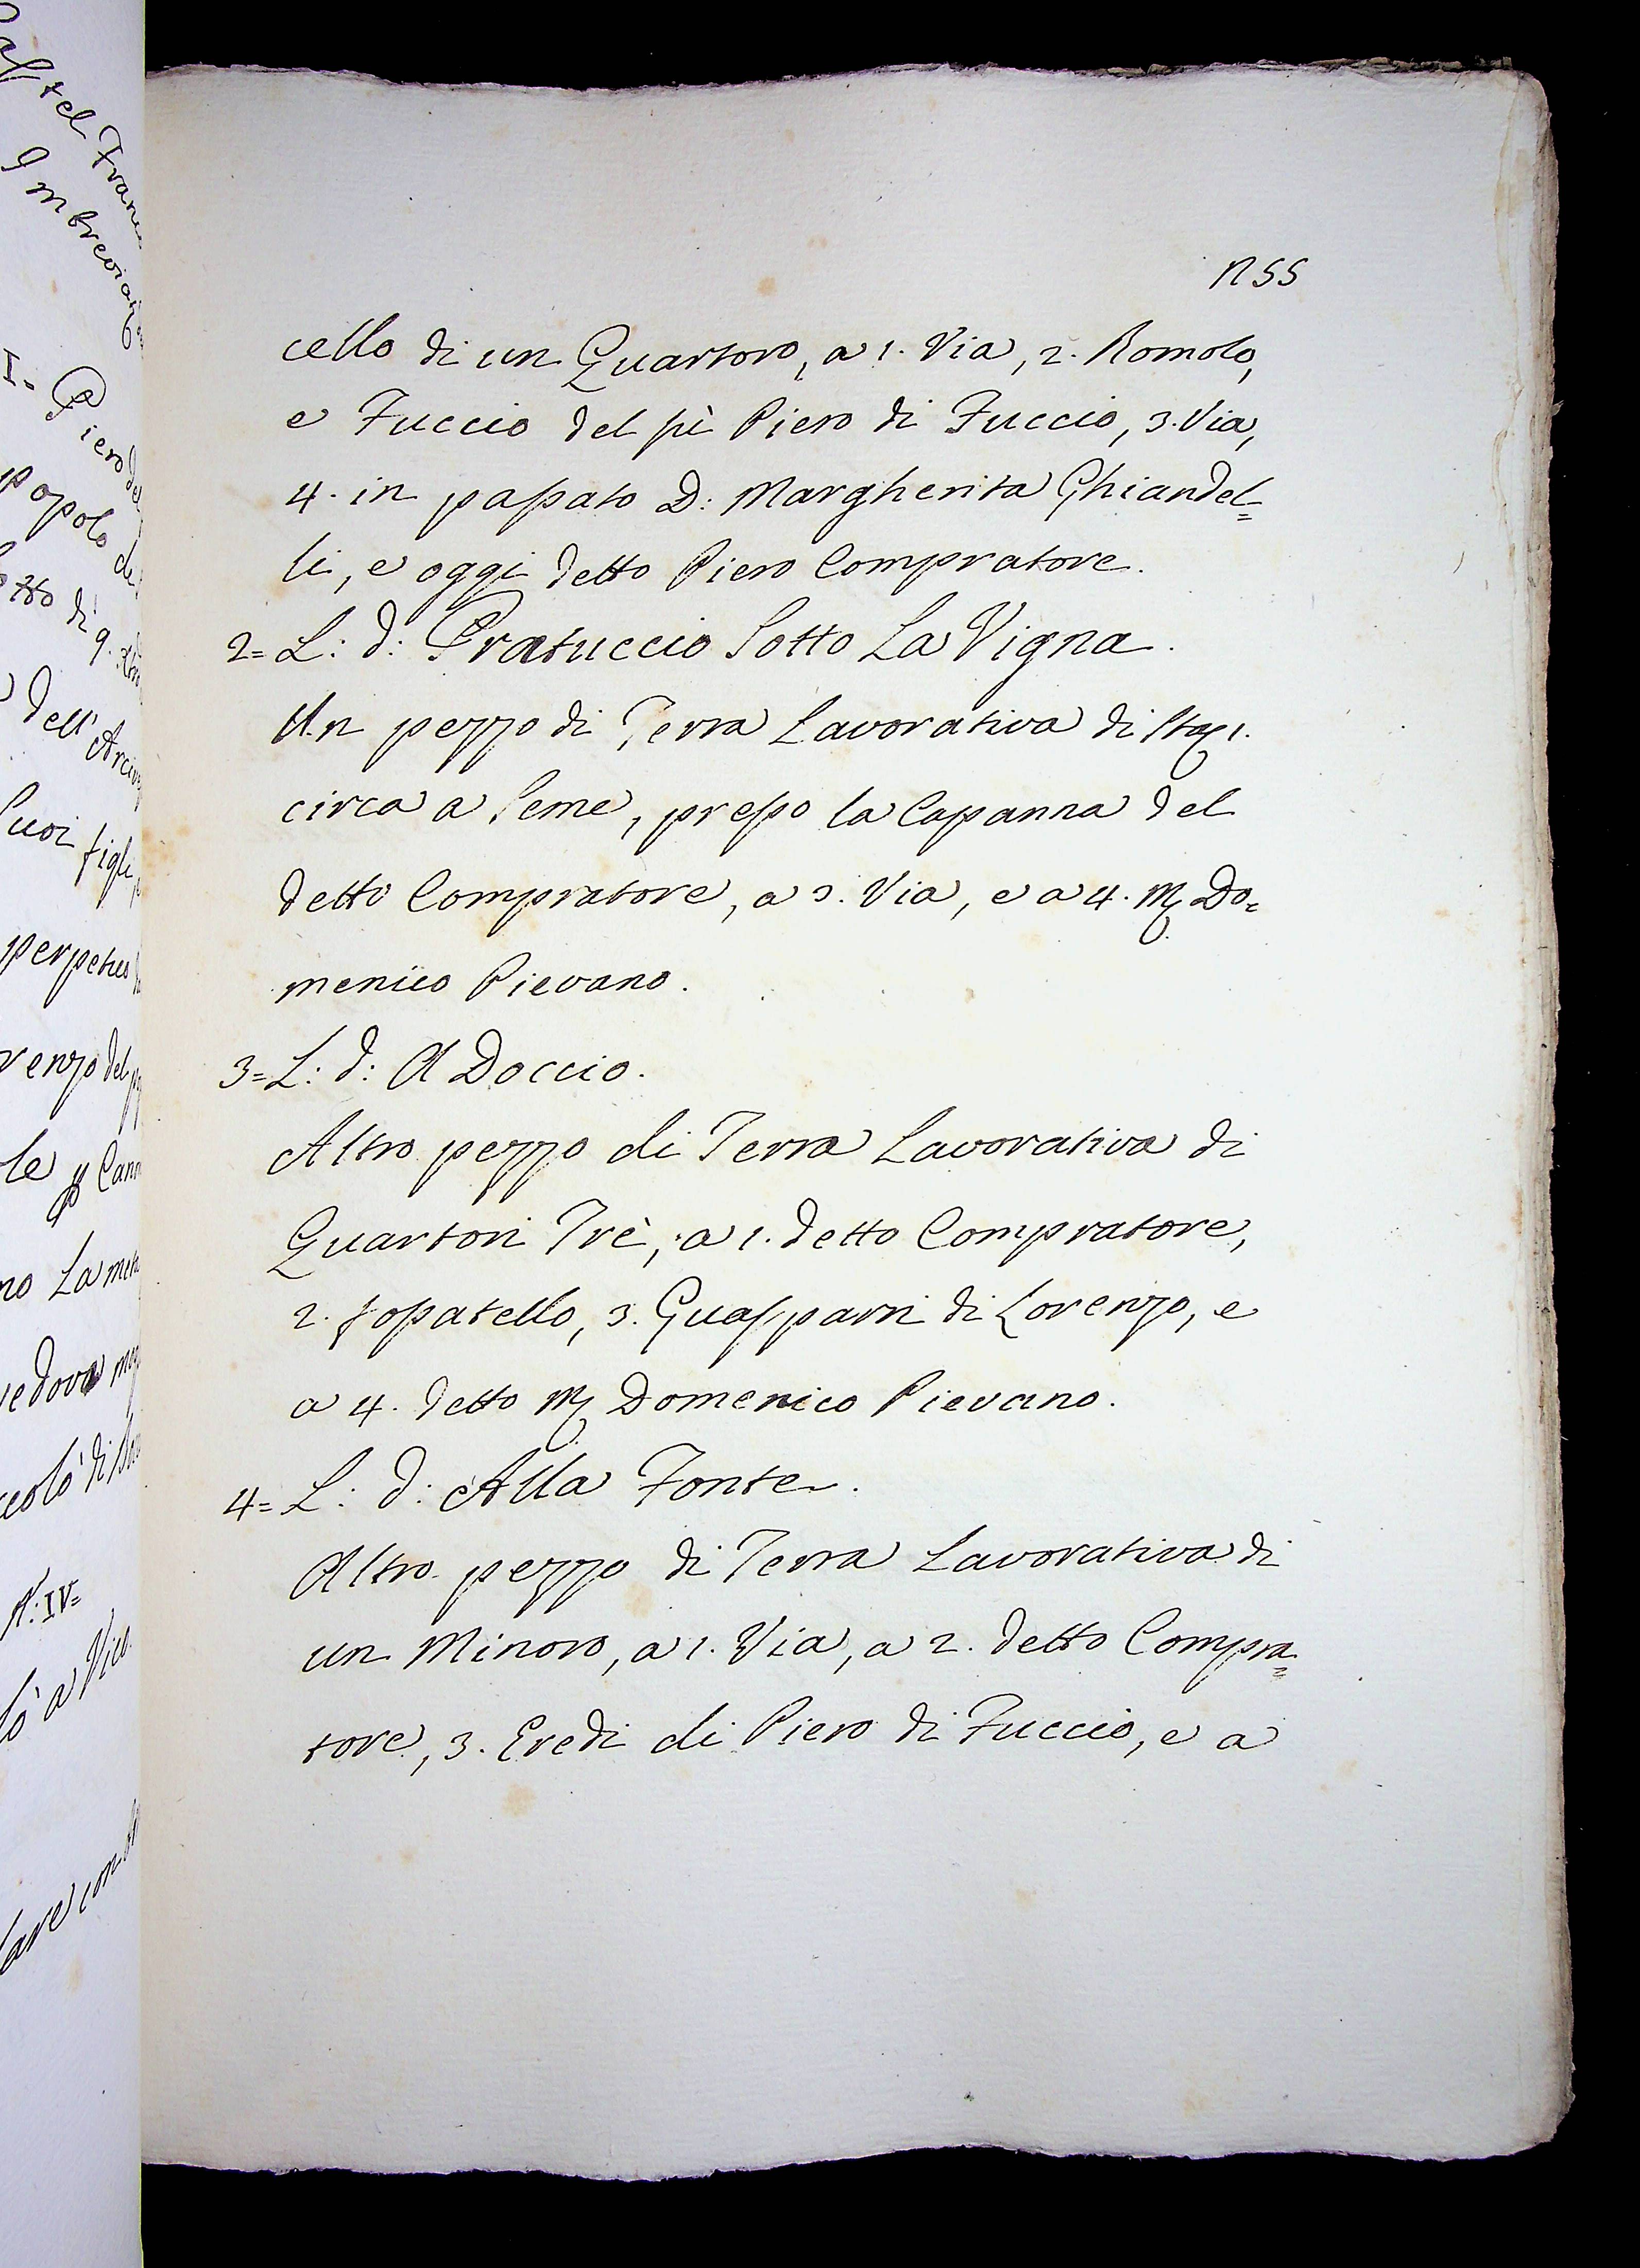 n 55
cello di un Quartoro, a 1. Via, 2. Romolo,
e Fuccio del più Piero di Fuccio, 3. Via,
4. in passato D: Margherita Ghiandel=
li, e oggi detto Piero Compratore.
2= L: d: Pratuccio Sotto La Vigna.
Un pezzo di Terra Lavorativa di 1.
circa a Seme, presso la Capanna del
detto Compratore, a 3. Via, e a 4. M Do=
menico Pievano.
3= L: d: A Doccio.
Altro pezzo di Terra Lavorativa di
Quartori Trè, a 1. detto Compratore,
2. fossatello, 3. Guasparri di Lorenzo, e
a 4. detto M Domenico Pievano.
4= L: d: Alla Fonte.
Altro pezzo di Terra Lavorativa di
un Minoro, a 1. Via, a 2. detto Compra=
tore, 3. Eredi di Piero di Fuccio, e a